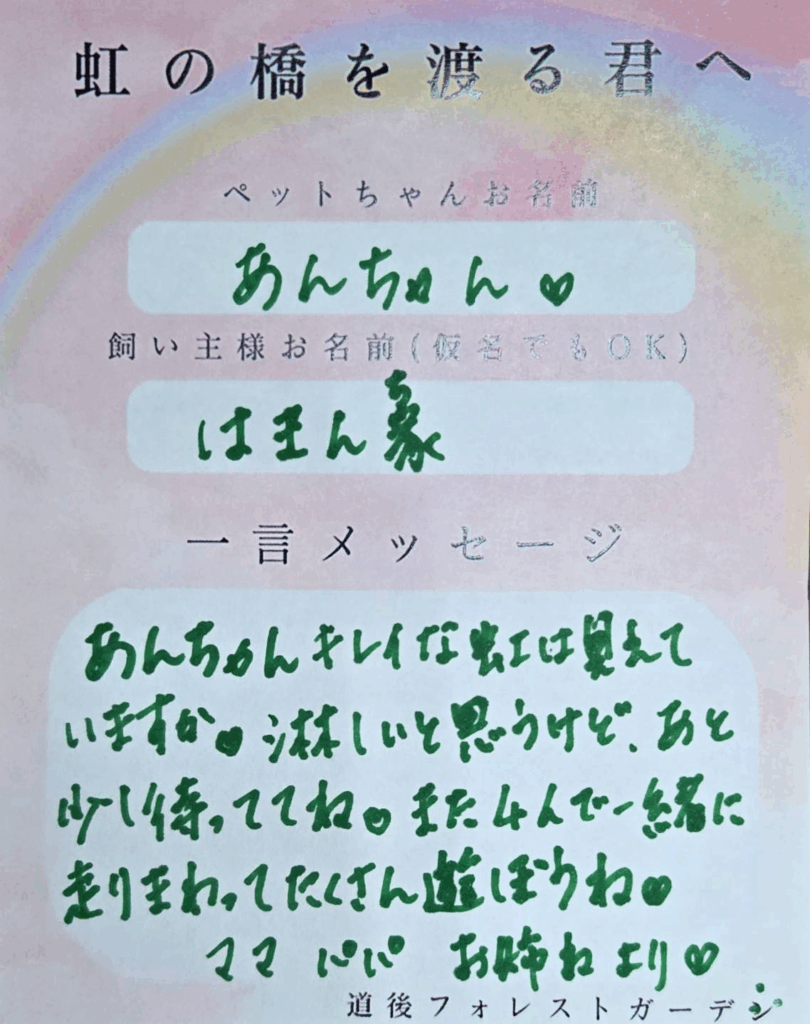 虹の橋を渡る君へ
ペットちゃんお名前
あんちゃん♡
飼い主様お名前(仮名でもOK)
はまん家
一言メッセージ
あんちゃんキレイな虹は見えて
いますか♡淋しいと思うけど、あと
少し待っててね♡また4人で一緒に
走りまわってたくさん遊ぼうね♡
ママ パパ お姉ねより♡
道後フォレストガーデン